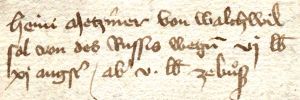 heini metzmer von walchwil
sol von des Russes wegen vj lb
xj angst / ab v. lb ze buoss